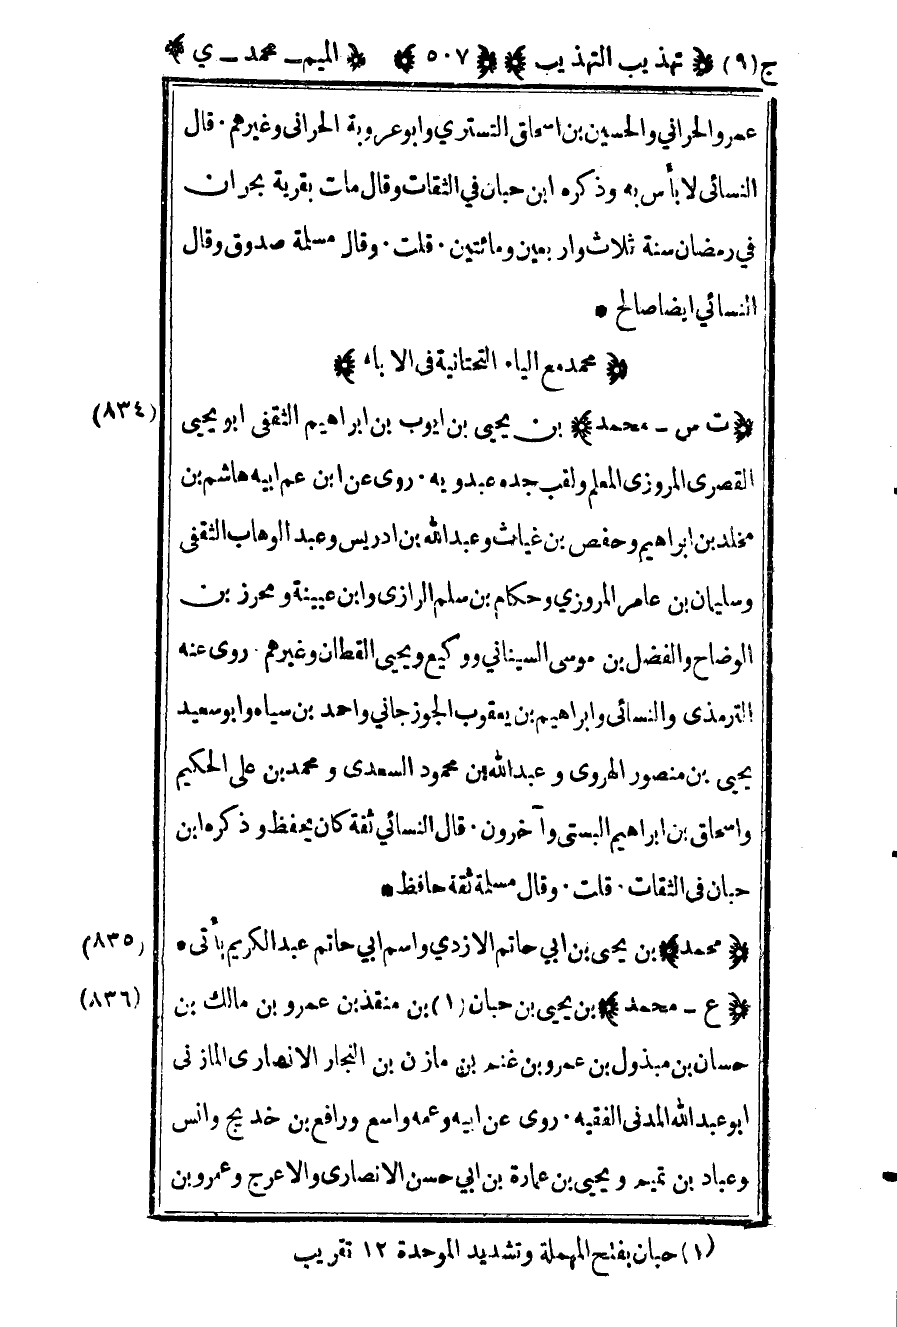 ج(٩) ﴿ تهذيب التهذيب ﴾ ﴿ ٥٠٧ ﴾ ﴿ الميم - محمد - ي ﴾
عمرو الحراني والحسين بن اسحاق التستري وابو عروبة الحرانى وغيرهم · قال
النسائى لا بأس به وذكره ابن حبان في الثقات وقال مات بقرية بحران
في رمضان سنة ثلاث واربعين ومائتين · قلت · وقال مسلمة صدوق وقال
النسائي ايضا صالح •
﴿ محمد مع الياء التحتانية فى الاباء ﴾
(٨٣٤) ﴿ ت س - محمد ﴾ بن يحيى بن ايوب بن ابراهيم الثقفى ابو يحيى
القصرى المروزى المعلم ولقب جده عبدويه · روى عن ابن عم ابيه هاشم بن
مخلد بن ابراهيم وحفص بن غياث وعبد الله بن ادريس وعبد الوهاب الثقفى
وسليمان بن عامر المروزي وحكام بن سلم الرازى وابن عيينة ومحرز بن
الوضاح والفضل بن موسى السيناني ووكيع ويحيى القطان وغيرهم · روى عنه
الترمذى والنسائى وابراهيم بن يعقوب الجوزجاني واحمد بن سياه وابو سعيد
يحيى بن منصور الهروى و عبد الله بن محمود السعدى و محمد بن على الحكيم
واسحاق بن ابراهيم البستى وآخرون · قال النسائي ثقة كان يحفظ وذكره ابن
حبان فى الثقات · قلت · وقال مسلمة ثقة حافظ •
(٨٣٥) ﴿ محمد ﴾ بن يحيى بن ابي حاتم الازدي واسم ابي حاتم عبد الكريم يأتى •
(٨٣٦) ﴿ ع - محمد ﴾ بن يحيى بن حبان (١) بن منقذ بن عمرو بن مالك بن
حسان بن مبذول بن عمرو بن غنم بن مازن بن النجار الانصارى المازنى
ابو عبد الله المدنى الفقيه · روى عن ابيه وعمه واسع ورافع بن خديج وانس
وعباد بن تميم ويحيى بن عمارة بن ابي حسن الانصارى والاعرج وعمرو بن
(١) حبان بفتح المهملة وتشديد الموحدة ١٢ تقريب